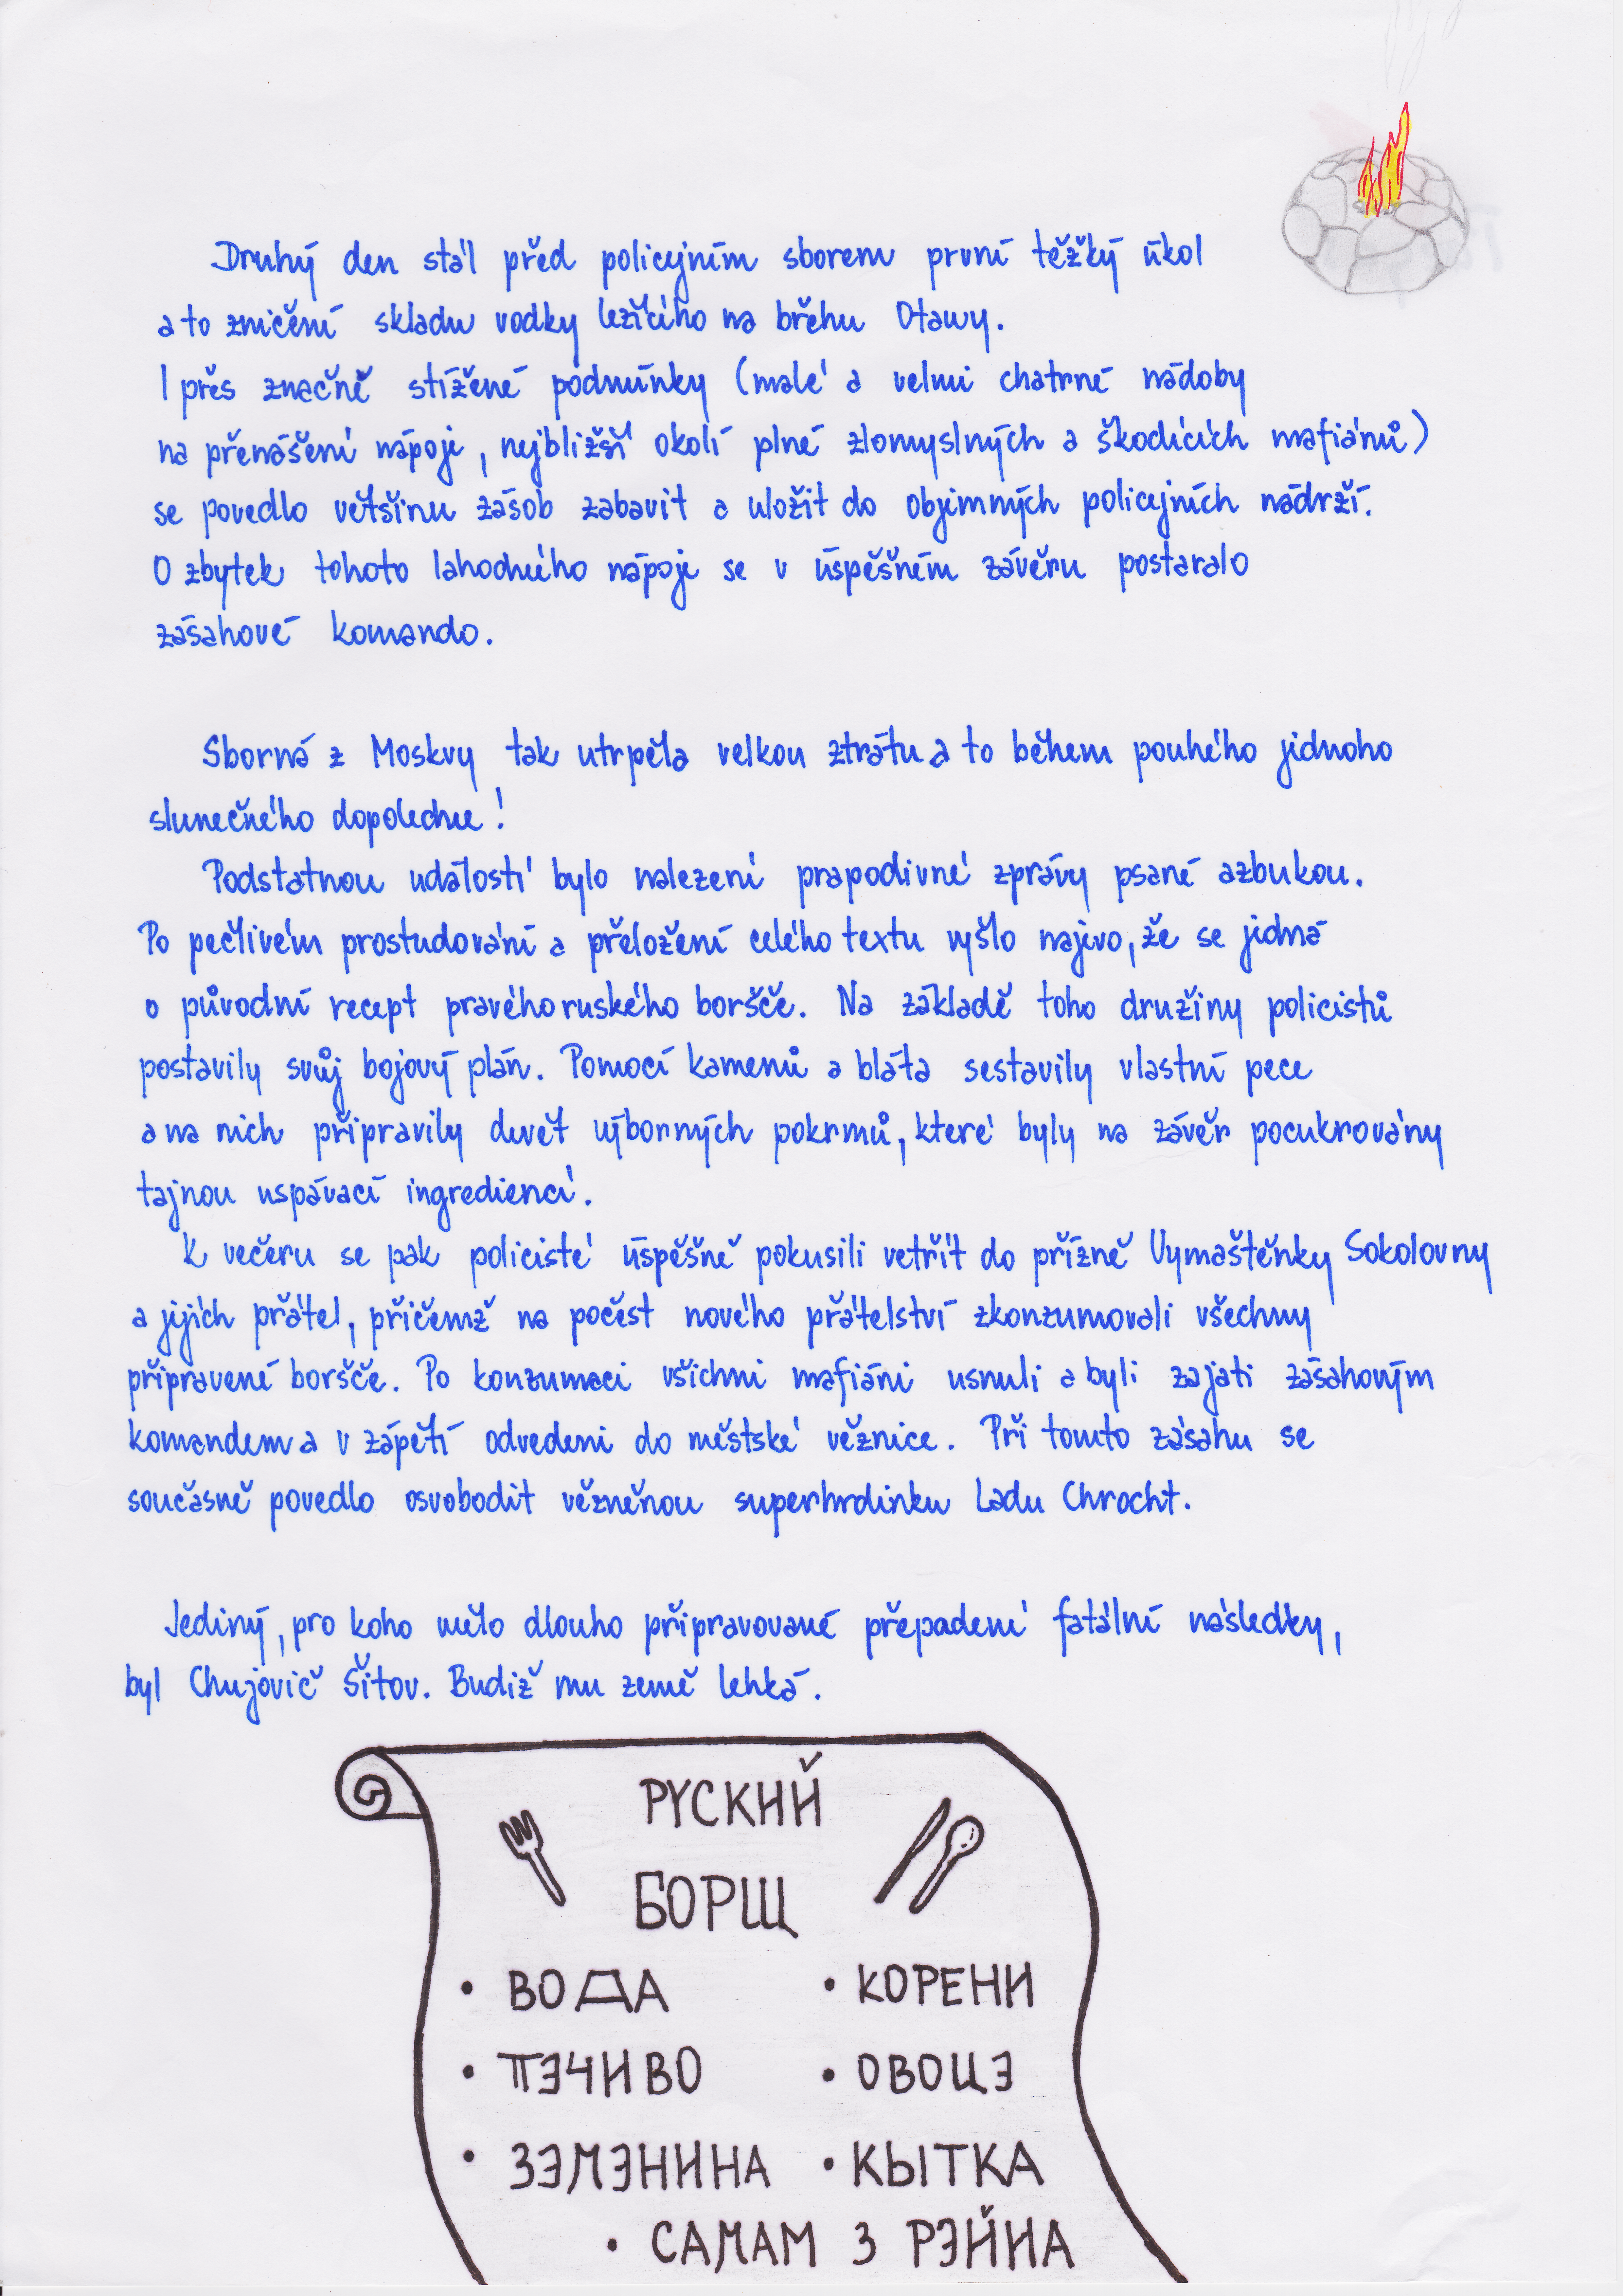 Druhý den stál před policejním sborem první těžký úkol
a to zničení skladu vodky ležícího na břehu Otavy.
I přes značně stížené podmínky (malé a velmi chatrné nádoby
na přenášení nápoje, nejbližší okolí plné zlomyslných a škodících mafiánů)
se povedlo většinu zásob zabavit a uložit do objemných policejních nádrží.
O zbytek tohoto lahodného nápoje se v úspěšném závěru postaralo
zásahové komando.
Sborná z Moskvy tak utrpěla velkou ztrátu a to během pouhého jednoho
slunečného dopoledne!
Podstatnou událostí bylo nalezení prapodivné zprávy psané azbukou.
Po pečlivém prostudování a přeložení celého textu vyšlo najevo, že se jedná
o původní recept pravého ruského boršče. Na základě toho družiny policistů
postavily svůj bojový plán. Pomocí kamenů a bláta sestavily vlastní pece
a na nich připravily devět výborných pokrmů, které byly na závěr pocukrovány
tajnou uspávací ingrediencí.
K večeru se pak policisté úspěšně pokusili vetřít do přízně Vymaštěnky Sokolovny
a jejích přátel, přičemž na počest nového přátelství zkonzumovali všechny
připravené boršče. Po konzumaci všichni mafiáni usnuli a byli zajati zásahovým
komandem a v zápětí odvedeni do městské věznice. Při tomto zásahu se
současně povedlo osvobodit vězněnou superhrdinku Ladu Chrocht.
Jediný, pro koho mělo dlouho připravované přepadení fatální následky,
byl Chujovič Šitov. Budiž mu země lehká.
РУСКИЙ
БОРЩ
• ВОДА • КОРЕНИ
• ПЭЧИВО • ОВОЦЭ
• ЗЭМЭНИНА • КЫТКА
• САЛАМ З РЭЙНА